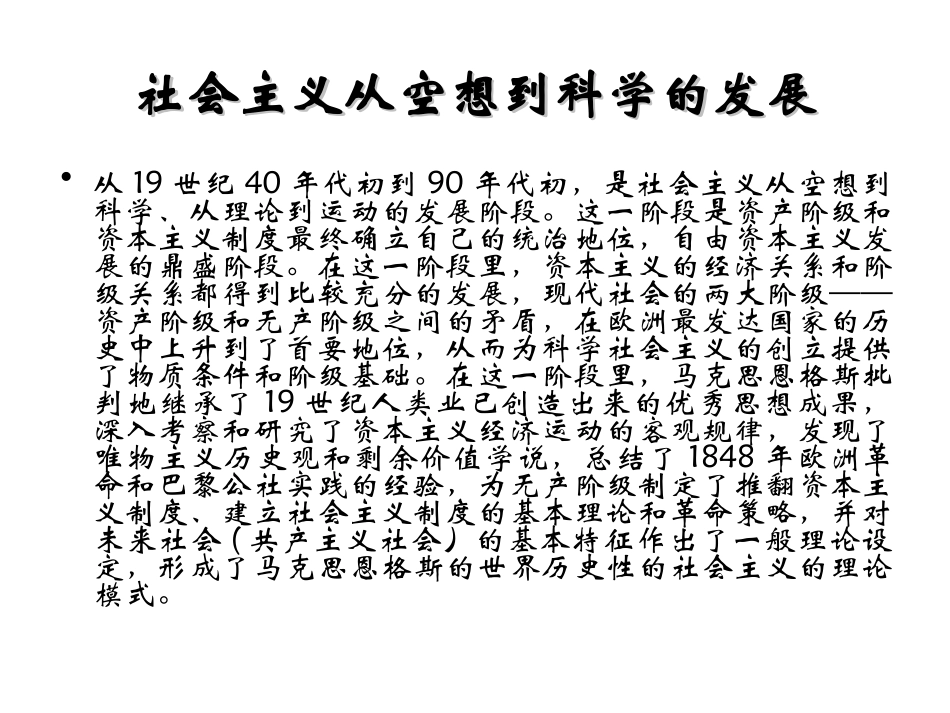 社会主义从空想到科学的发展
• 从 19 世纪 40 年代初到 90 年代初，是社会主义从空想到
科学、从理论到运动的发展阶段。这一阶段是资产阶级和
资本主义制度最终确立自己的统治地位，自由资本主义发
展的鼎盛阶段。在这一阶段里，资本主义的经济关系和阶
级关系都得到比较充分的发展，现代社会的两大阶级——
资产阶级和无产阶级之间的矛盾，在欧洲最发达国家的历
史中上升到了首要地位，从而为科学社会主义的创立提供
了物质条件和阶级基础。在这一阶段里，马克思恩格斯批
判地继承了 19 世纪人类业已创造出来的优秀思想成果，
深入考察和研究了资本主义经济运动的客观规律，发现了
唯物主义历史观和剩余价值学说，总结了 1848 年欧洲革
命和巴黎公社实践的经验，为无产阶级制定了推翻资本主
义制度、建立社会主义制度的基本理论和革命策略，并对
未来社会（共产主义社会）的基本特征作出了一般理论设
定，形成了马克思恩格斯的世界历史性的社会主义的理论
模式。